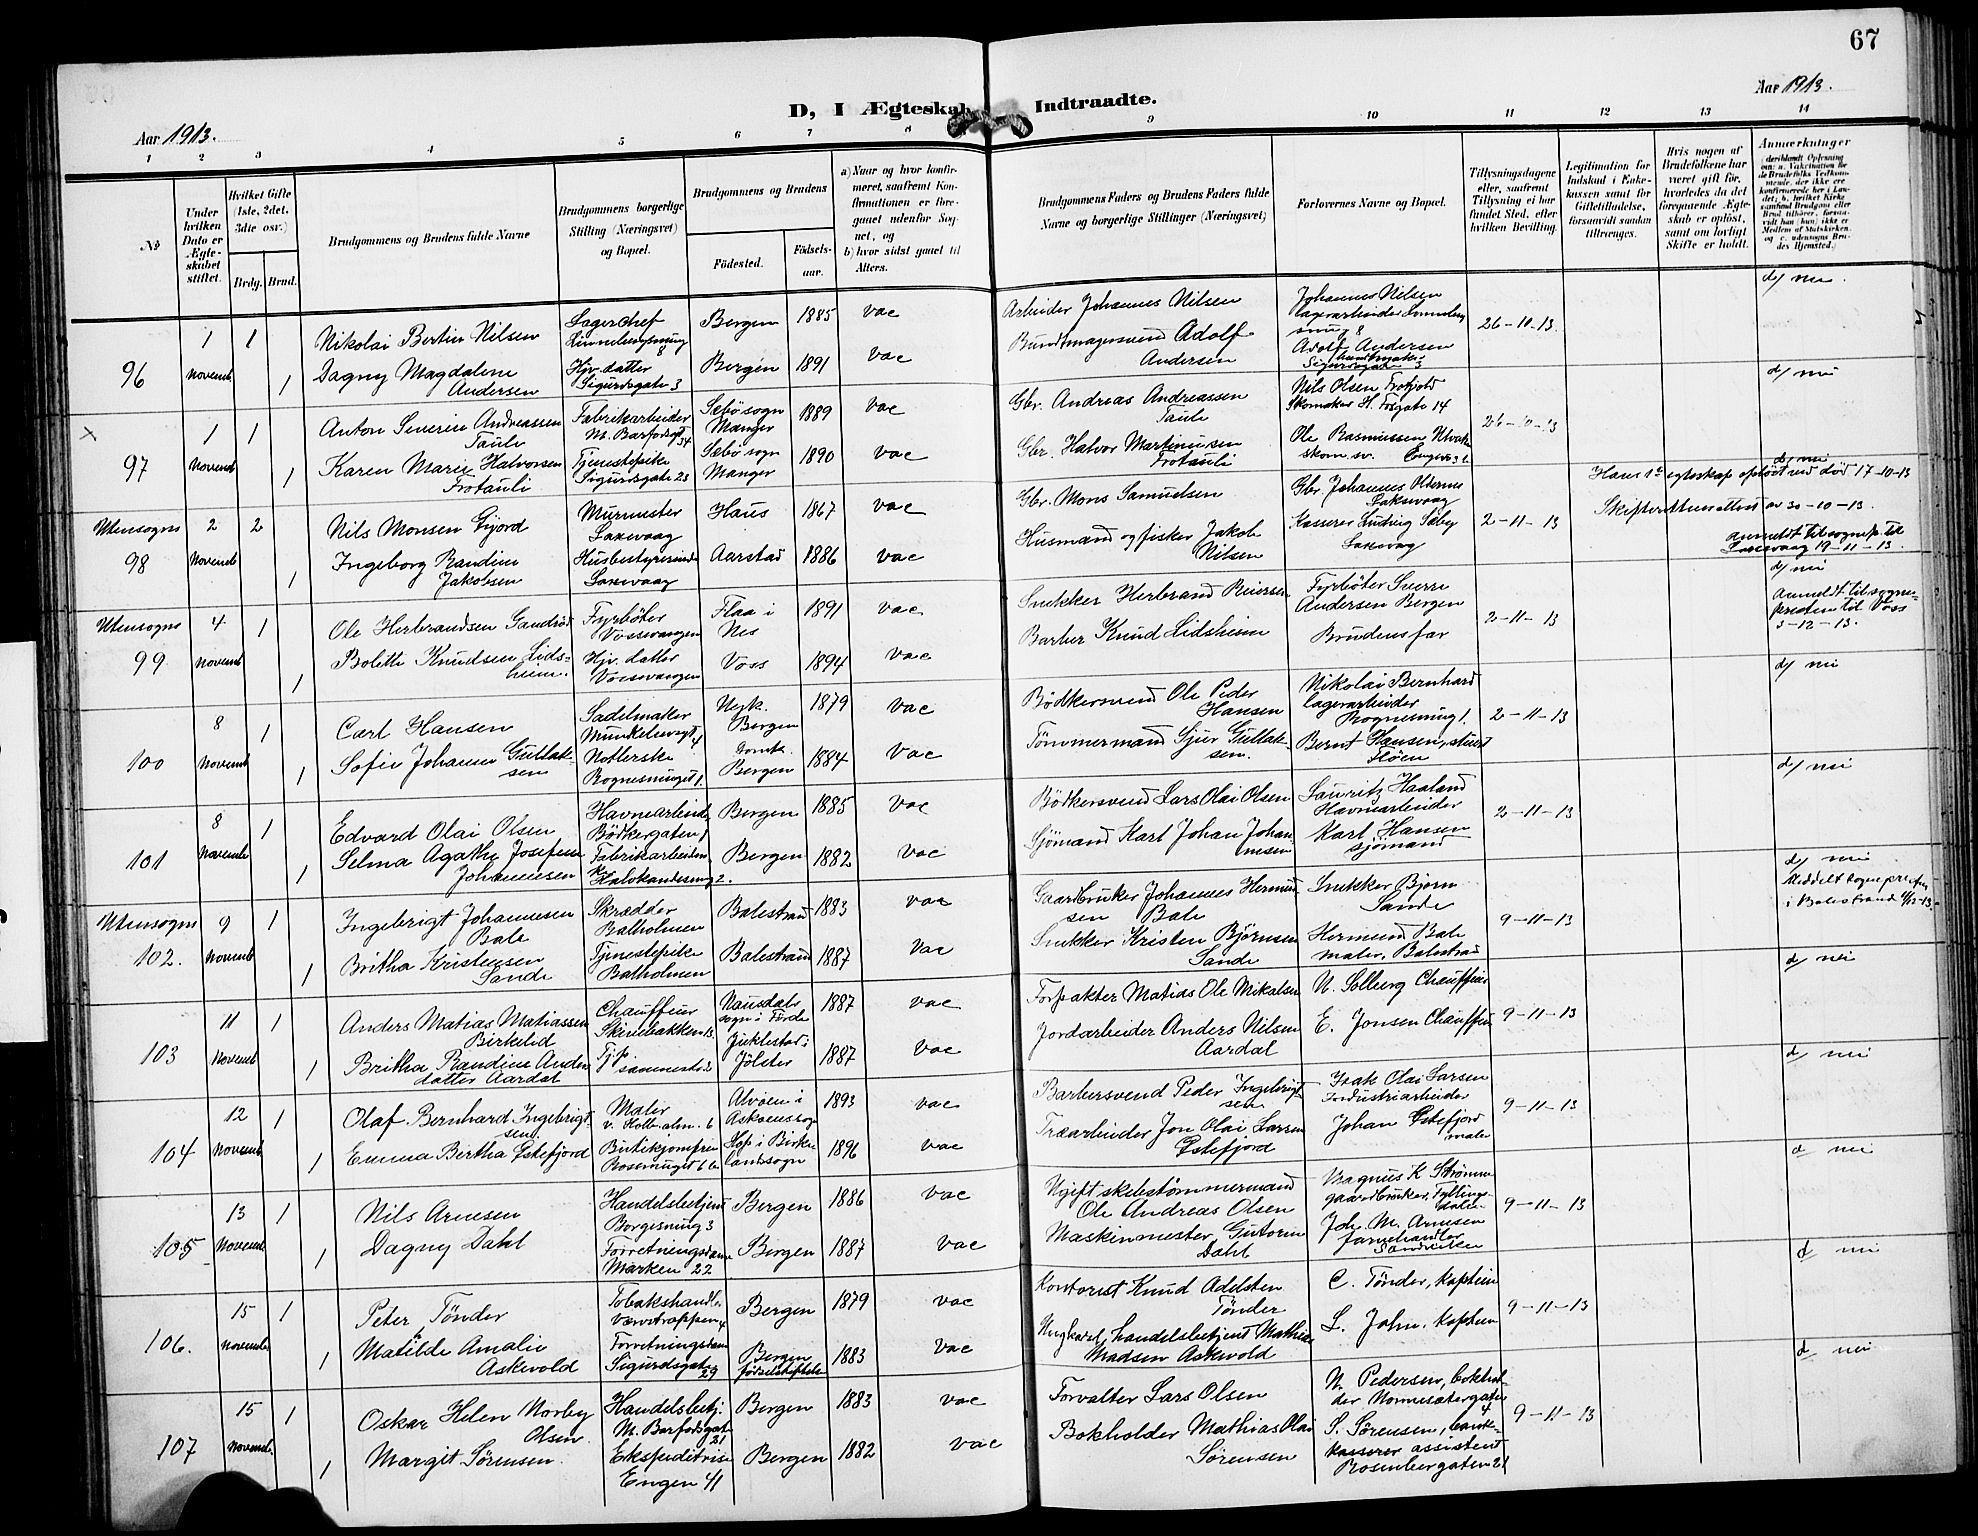 67
D, I Ægteskab Indtraadte.
Aar 1913.
Aar 1913.
1 2 3 4 5 6 7 8 9 10 11 12 13 14
No
Under hvilken Dato er Ægteskabet stiftet.
Hvilket Gifte (1ste, 2det, 3die osv.)
Brdg. Brud.
Brudgommens og Brudens fulde Navne
Brudgommens borgerlige Stilling (Næringsvei) og Bopæl.
Brudgommens og Brudens
Födested.
Födselsaar.
a) Naar og hvor konfirmeret, saafremt Konfirmationen er foregaaet udenfor Sognet, og
b) hvor sidst gaaet til Alters.
Brudgommens Faders og Brudens Faders fulde Navne og borgerlige Stillinger (Næringsvei)
Forlovernes Navne og Bopæl.
Tillysningsdagene eller, saafremt Tillysning ei har fundet Sted, efter hvilken Bevilling.
Legitimation for Indskud i Enkekassen samt for Giftetilladelse, forsaavidt saadan tiltrænges.
Hvis nogen af Brudefolkene har været gift før, hvorledes da det foregaaende Ægteskab er opløst, samt om lovligt Skifte er holdt.
Anmærkninger
96
1 Novemb
1
Nikolai Bertin Nilsen
Lagerchef
8
Bergen
1885
vac
Arbeider Johannes Nilsen
Johannes Nilsen
lagerarbeider
26-10-13.
d/ nei.
1
Dagny Magdalene
Andersen
Hjv. datter
Sigurdsgate 3
Bergen
1891
vac
Bundtmagersvend Adolf
Andersen
Adolf Andersen
Sigurdsgate 3
97
1 Novemb
1
Anton Severin Andreassen
Taule
Fabrikarbeider
M. Barfodsgt
34
Sæbö sogn
Manger
1889
vac
Gbr. Andreas Andreassen
Taule
Nils Olsen
Skomaker H. Frsgate 14
26-10-13
d/ nei
1
Karen Marie Halvorsen
Frotauli
Tjenestepike
Sigurdsgate 23
Sæbö sogn
Manger
1890
vac
Gbr. Halvor Martinusen
Frotauli
Ole Rasmussen
skom. sv.
Utensogns
98
2 Novemb
2
Nils Monsen Gjord
Murmester
Laxevaag
Haus
1867
vac
Gbr. Mons Samuelsen
Gbr. Johannes
Laksevaag
2-11-13
d/ nei
Hans 1ste egteskap opløst ved død 17-10-13
Skifterettens attest av 30-10-13.
1
Ingeborg Randine
Jakobsen
Husbestyrerinde
Laxevaag
Aarstad
1886
vac
Husmand og fisker Jakob
Nilsen
Kasserer Ludvig Sæby
Laxevaag
anmeldt til sognep. til
Laxevaag 19-11-13.
Utensogns
99
4 Novemb
1
Ole Herbrandsen
Fyrböter
Vossevangen
Flaa i
Nes
1891
vac
Snekker Herbrand Reiersen
Fyrböter Sverre
Andersen Bergen
2-11-13
d/ nei
anmeldt til sogne-
presten til Voss
3-12-13.
1
Bolette Knudsen Lids-
heim.
Hjv. datter
Vossevangen
Voss
1894
vac
Barber Knud Lidsheim
Brudens far
100
8 Novemb
1
Carl Hansen
Sadelmaker
Munkebævgt
4
Nyk.
Bergen
1879
vac
Bödkersvend Ole Peder
Hansen
Nikolai Bernhard
lagerarbeider
Rognesmug 1.
2-11-13
d/ nei
1
Sofie Johanne Guttak-
sen
Notterske
Rognesmuget 1.
Domk.
Bergen
1884
vac
Tömmermand Sjur Guttak-
sen.
Bernt Hansen, stuert
Støen
101
8 Novemb
1
Edvard Olai Olsen
Havnearbeid.
Bödkergaten 1
Bergen
1885
vac
Bödkersvend Lars Olai Olsen
Lauritz Haaland
Havnearbeider
2-11-13
d/ nei
1
Selma Agathe Josefine
Johannesen
Fabrikarbeiderske
Halvkandesmug 2.
Bergen
1882
vac
Sjömand Karl Johan Johan
nesen
Karl Hansen
sjömand
Utensogns
102.
9 Novemb
1
Ingebrigt Johannesen
Bale
Skrædder
Balholmen
Balestrand
1883
vac
Gaardbruker Johannes Hermund-
sen Bale
Snekker Bjørn
Sande
9-11-13
d/ nei
Meddelt sognepresten
i Balestrand
1
Britha Kristensen
Sande
Tjenestepike
Balholmen
Balestrand
1887
vac
Snekker Kristen Björnsen
Sande
Hermund Bale
maler, Balestrand
103
11 Novemb
1
Anders Matias Matiassen
Birkelid
Chauffeur
Skivebakken 13
Naustdals
sogn i Förde
1887
vac
Forpakter Matias Ole Mikalsen
N. Solberg Chauffeur
9-11-13
d/ nei
1
Britha Randine Anders
datter Aardal
Tj.p.
sammested
Jölster
1887
vac
Jordarbeider Anders Nilsen
Aardal
E. Jonsen Chauffeur
104
12 Novemb
1
Olaf Bernhard Ingebrigt-
sen.
Maler
6
Alvöen i
Askøensogn
1893
vac
Barbersvend Peder Ingebrigt-
sen
Isak Olai Larsen
Industriarbeider
9-11-13
d/ nei
1
Emma Bertha Estefjord
Butikjomfru
Rosesmuget 6
Hop i Birke
landsogn
1896
vac
Træarbeider Jon Olai Larsen
Estefjord
Johan Estefjord
maler
105
13 Novemb
1
Nils Arnesen
Handelsbetjent
Borgesmug 3
Bergen
1886
vac
Ugift skibstømmermand
Ole Andreas Olsen
Magnus K Strömme
gaardbruker, Fyllings-
dalen
9-11-13
d/ nei
1
Dagny Dahl
Forretningsdame
Marken 22
Bergen
1887
vac
Maskinmester Gutorm
Dahl
Joh. M. Arnesen
Sandviken
106.
15 Novemb.
1
Peter Tönder
Tobakshandler
Vævetrappen 4
Bergen
1879
vac
Kontorist Knud Adelsten
Tönder
C. Tönder, kaptein
9-11-13
d/ nei
1
Matilde Amalie
Askevold
Forretningsdame
Sigurdsgate
29
Bergen
fødselsstiftelse
1883
vac
Ungkarl, handelsbetjent Mathias
Madsen Askevold
L. John, kaptein
107
15 Novemb.
1
Oskar Helen Norby
Olsen
Handelsbetj.
M. Barfodsgate
21
Bergen
1883
vac
Forvalter Lars Olsen
N. Pedersen, bokhol-
der Nonnesætergaten
4
9-11-13
d/ nei
1
Margit Sörensen.
Ekspeditrise
Engen 41
Bergen
1882
vac
Bokholder Mathias Olai
Sörensen
S. Sörensen, bank-
kasserer assistent
Rosenbergaten 21